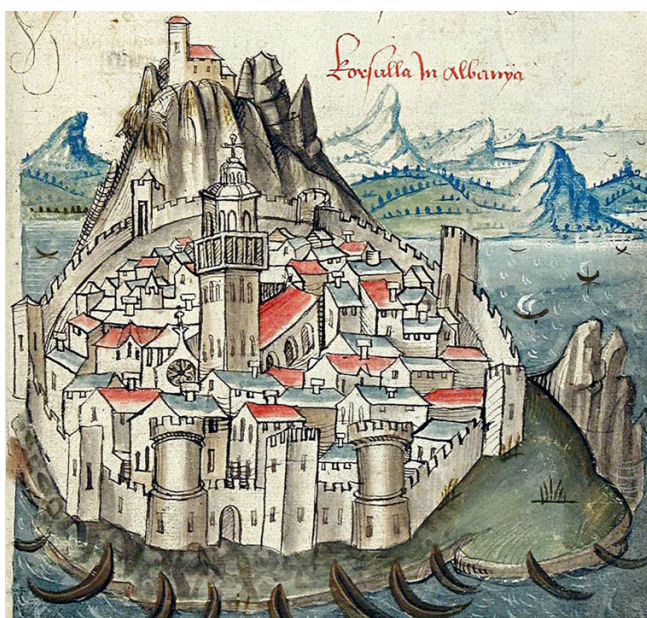 Korsulla In Albanÿa